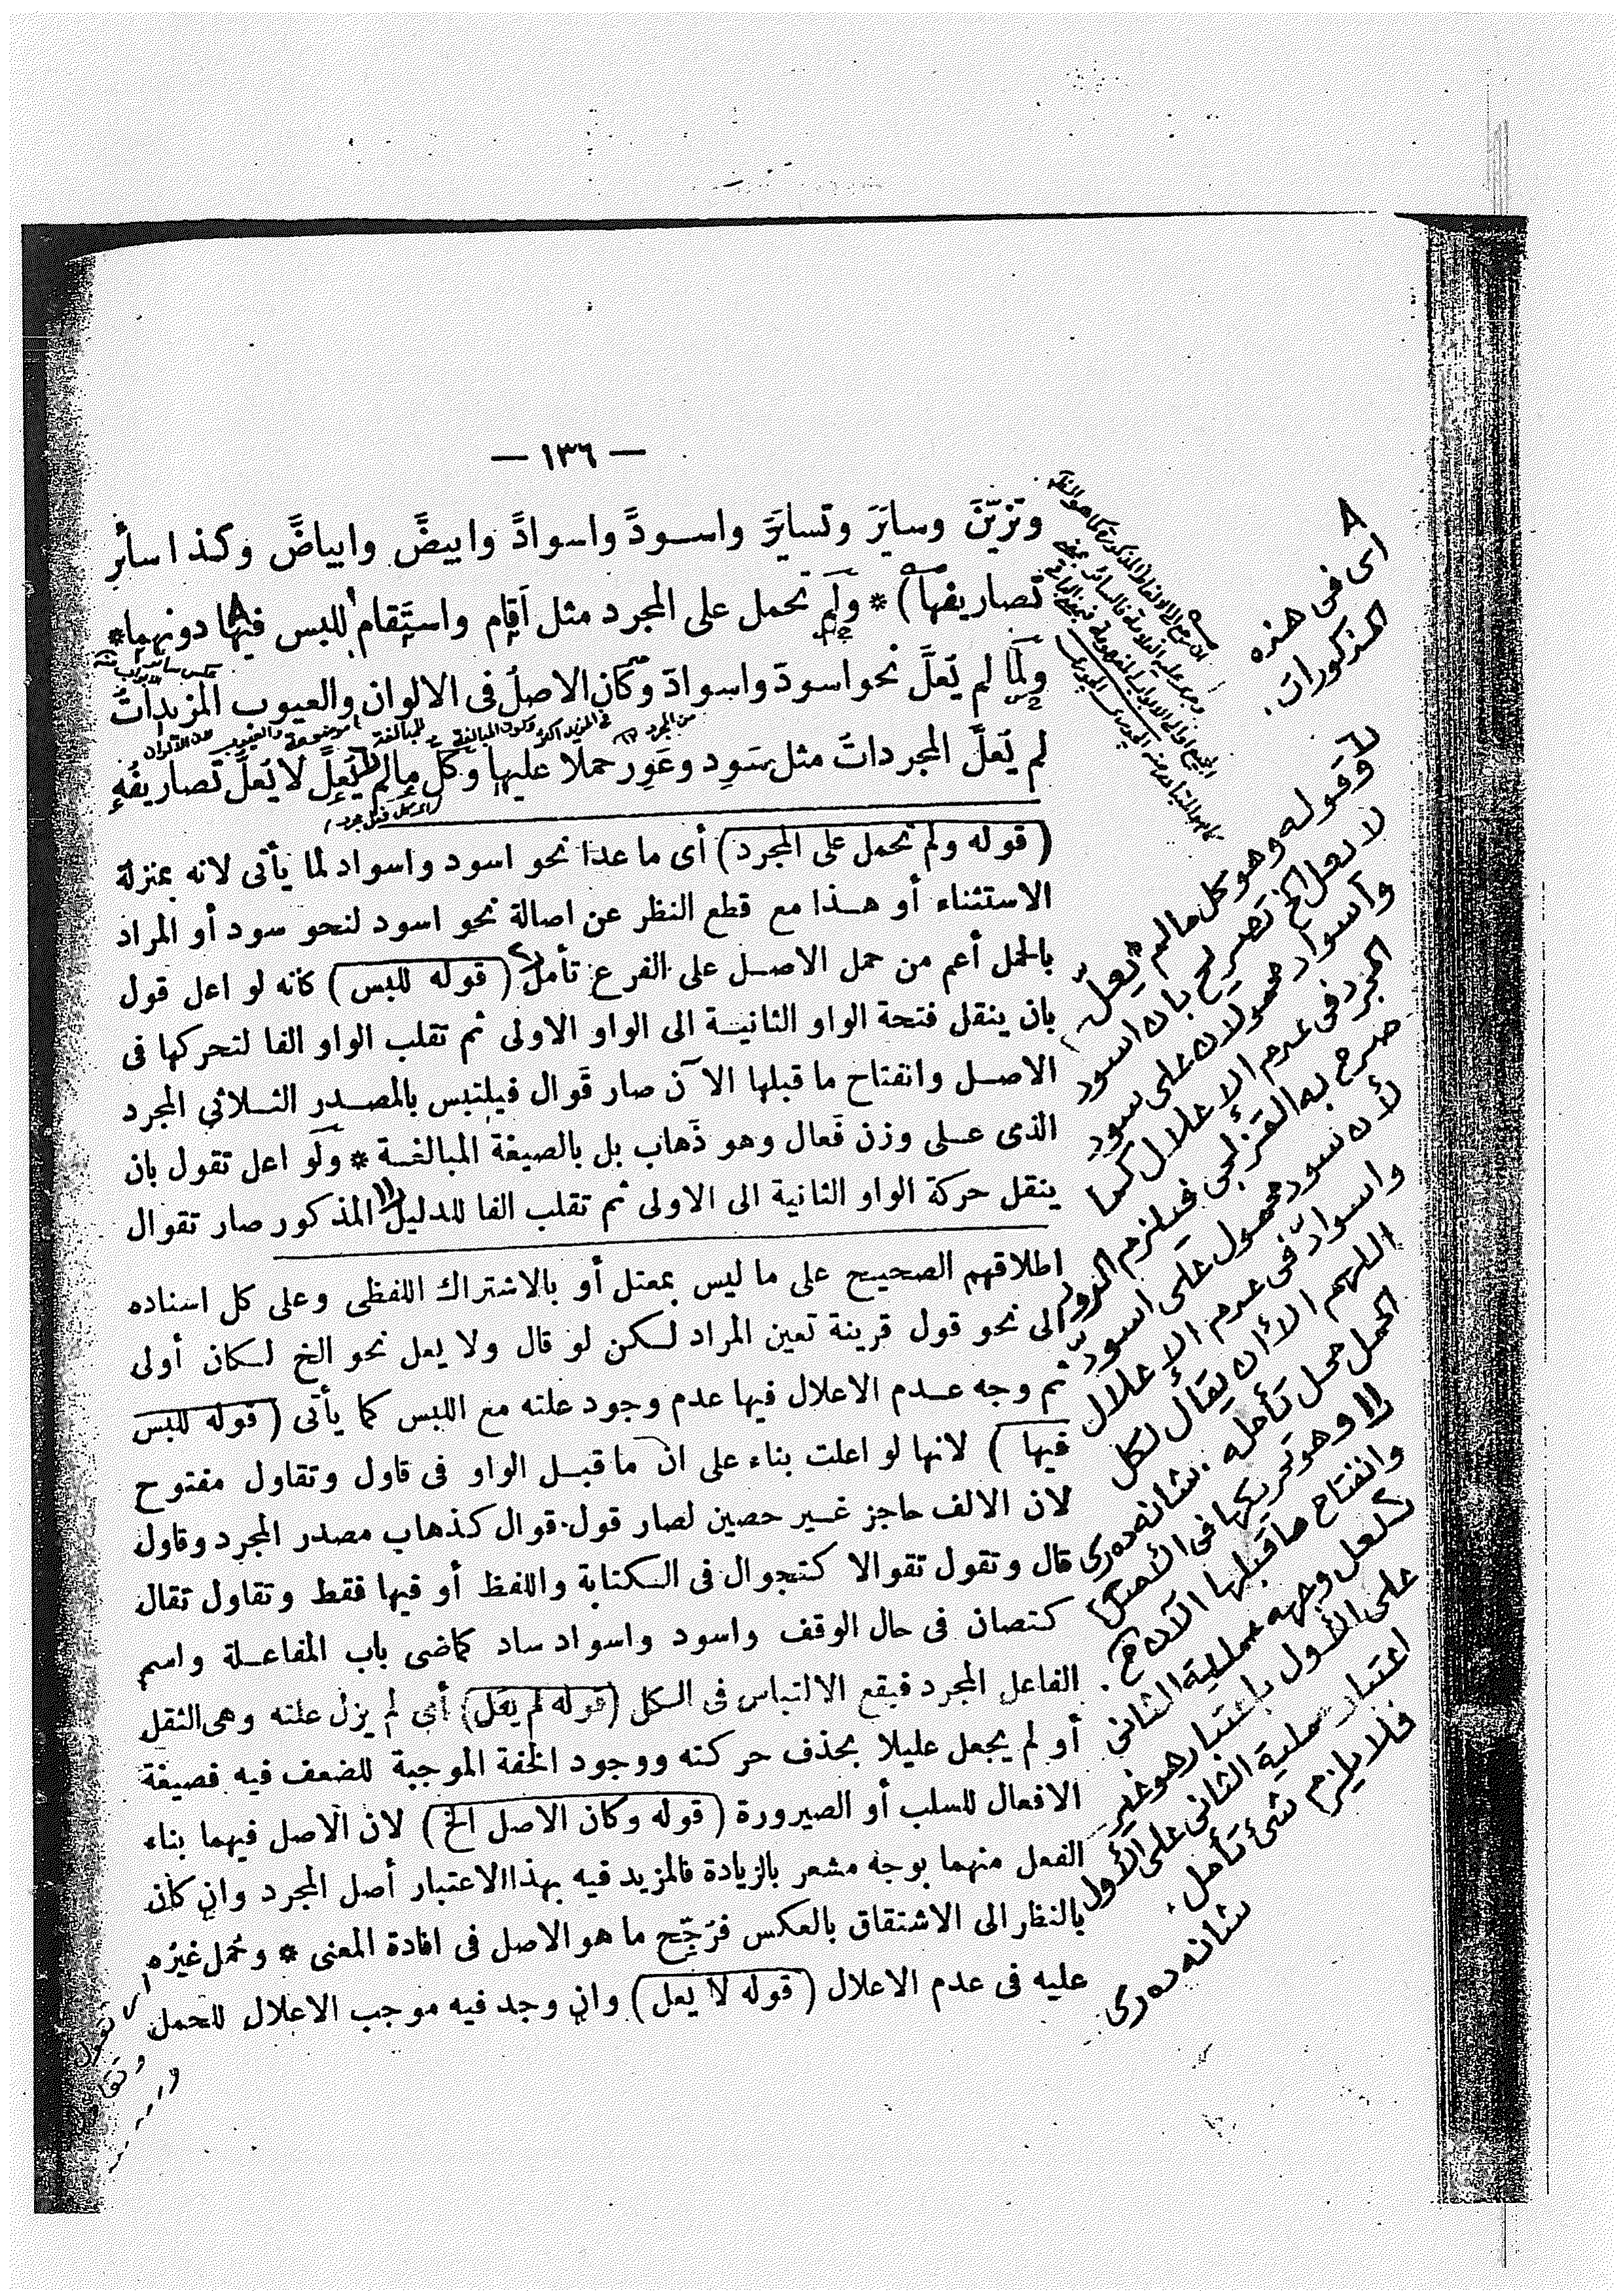 — ١٣٦ —
وتزيّنَ وسايَرَ وتسايَرَ واسودَّ واسوادَّ وابيضَّ وابياضَّ وكذا سائر
تصاريفها) * ولَم تحمل على المجرد مثل اَقام واستَقام للبس فيها دونهما *
ولَمّا لم يُعلَّ نحو اسودّ واسوادّ وكان الاصلُ فى الالوان والعيوب المزيداتُ
لم يُعلَّ المجرداتُ مثل سَوِد وعَوِر حملا عليها وكل مالم يُعلَّ لا يُعلّ تصاريفُه
(قوله ولم تحمل على المجرد) أى ما عدا نحو اسود واسواد لما يأتى لانه بمنزلة
الاستثناء أو هذا مع قطع النظر عن اصالة نحو اسود لنحو سود أو المراد
بالحمل أعم من حمل الاصل على الفرع تأمل (قوله للبس) كانه لو اعل قول
بان ينقل فتحة الواو الثانية الى الواو الاولى ثم تقلب الواو الفا لتحركها فى
الاصل وانفتاح ما قبلها الآن صار قَوال فيلتبس بالمصدر الثلاثى المجرد
الذى على وزن فَعال وهو ذَهاب بل بالصيغة المبالغة * ولَو اعل تقول بان
ينقل حركة الواو الثانية الى الاولى ثم تقلب الفا للدليل المذكور صار تقوال
اطلاقهم الصحيح على ما ليس بمعتل أو بالاشتراك اللفظى وعلى كل اسناده
الى نحو قول قرينة تعين المراد لكن لو قال ولا يعل نحو الخ لكان أولى
ثم وجه عدم الاعلال فيها عدم وجود علته مع اللبس كما يأتى (قوله للبس
فيها) لانها لو اعلت بناء على ان ما قبل الواو فى قاول وتقاول مفتوح
لان الالف حاجز غير حصين لصار قول قوال كذهاب مصدر المجرد وقاول
قال وتقول تقوالا كتجوال فى الكتابة واللفظ أو فيها فقط وتقاول تقال
كتصان فى حال الوقف واسود واسواد ساد كماضى باب المفاعلة واسم
الفاعل المجرد فيقع الالتباس فى الكل (قوله لم يعل) أى لم يزل علته وهى الثقل
أو لم يجعل عليلا بحذف حركته ووجود الخفة الموجبة للضعف فيه فصيغة
الافعال للسلب أو الصيرورة (قوله وكان الاصل الخ) لان الاصل فيهما بناء
الفعل منهما بوجه مشعر بالزيادة فالمزيد فيه بهذا الاعتبار أصل المجرد وان كان
بالنظر الى الاشتقاق بالعكس فرَجّح ما هو الاصل فى افادة المعنى * وحُمل غيرُه
عليه فى عدم الاعلال (قوله لا يعل) وان وجد فيه موجب الاعلال للحمل
اى فى هذه
المذكورات.
وقوله وهو كل مالم يُعلّ
لا يعل الخ تصريح بان اسود
واسواد محمولان على سود
المجرد فى عدم الاعلال كما
صرح به القزلجى فيلزم الدور
لأن سود محمول على اسودّ
واسوادّ فى عدم الاعلال
اللهم الا أن يقال لكل
الحمل محل تأمله.
وهو تحريكها فى الأصل
وانفتاح ما قبلها الآن
لعل وجهه عملية الثانى
على الأول باعتبار هو غير
اعتبار عملية الثانى على الأول
فلا يلزم شئ تأمل.